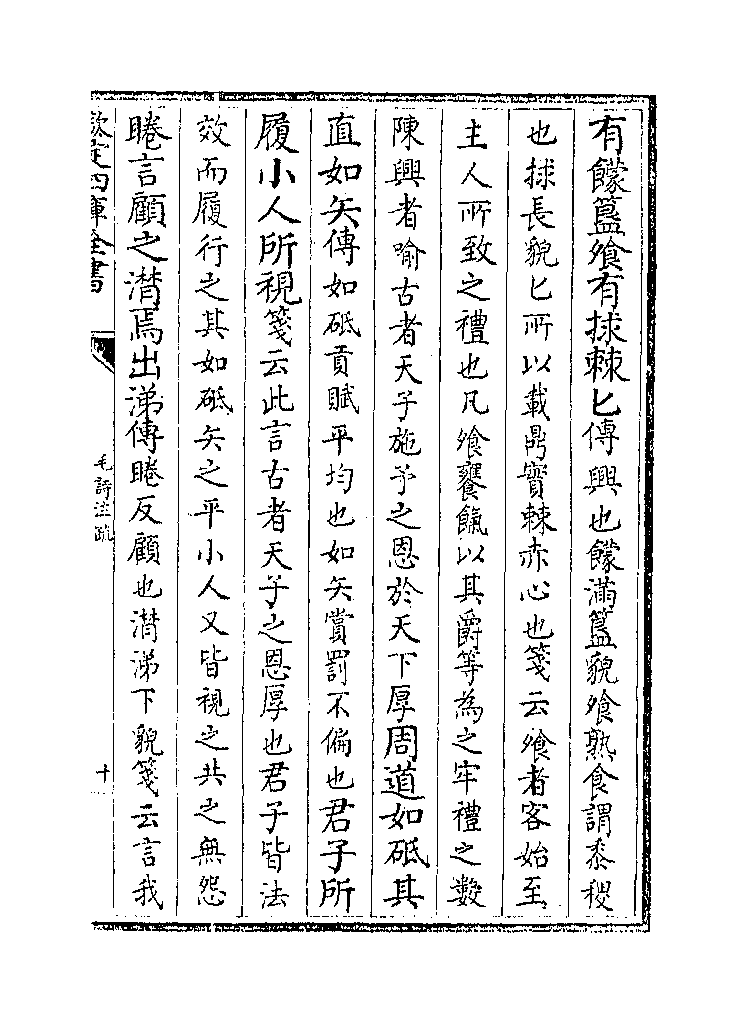 有饛簋飧有捄棘匕傳興也饛滿簋貌飧熟食謂黍稷
也捄長貌匕所以載鼎實棘赤心也箋云飧者客始至
主人所致之禮也凡飧饔餼以其爵等為之牢禮之數
陳興者喻古者天子施予之恩於天下厚周道如砥其
直如矢傳如砥貢賦平均也如矢賞罰不偏也君子所
履小人所視箋云此言古者天子之恩厚也君子皆法
效而履行之其如砥矢之平小人又皆視之共之無怨
睠言顧之潸焉出涕傳睠反顧也潸涕下貌箋云言我
欽定四庫全書
毛詩注疏
十